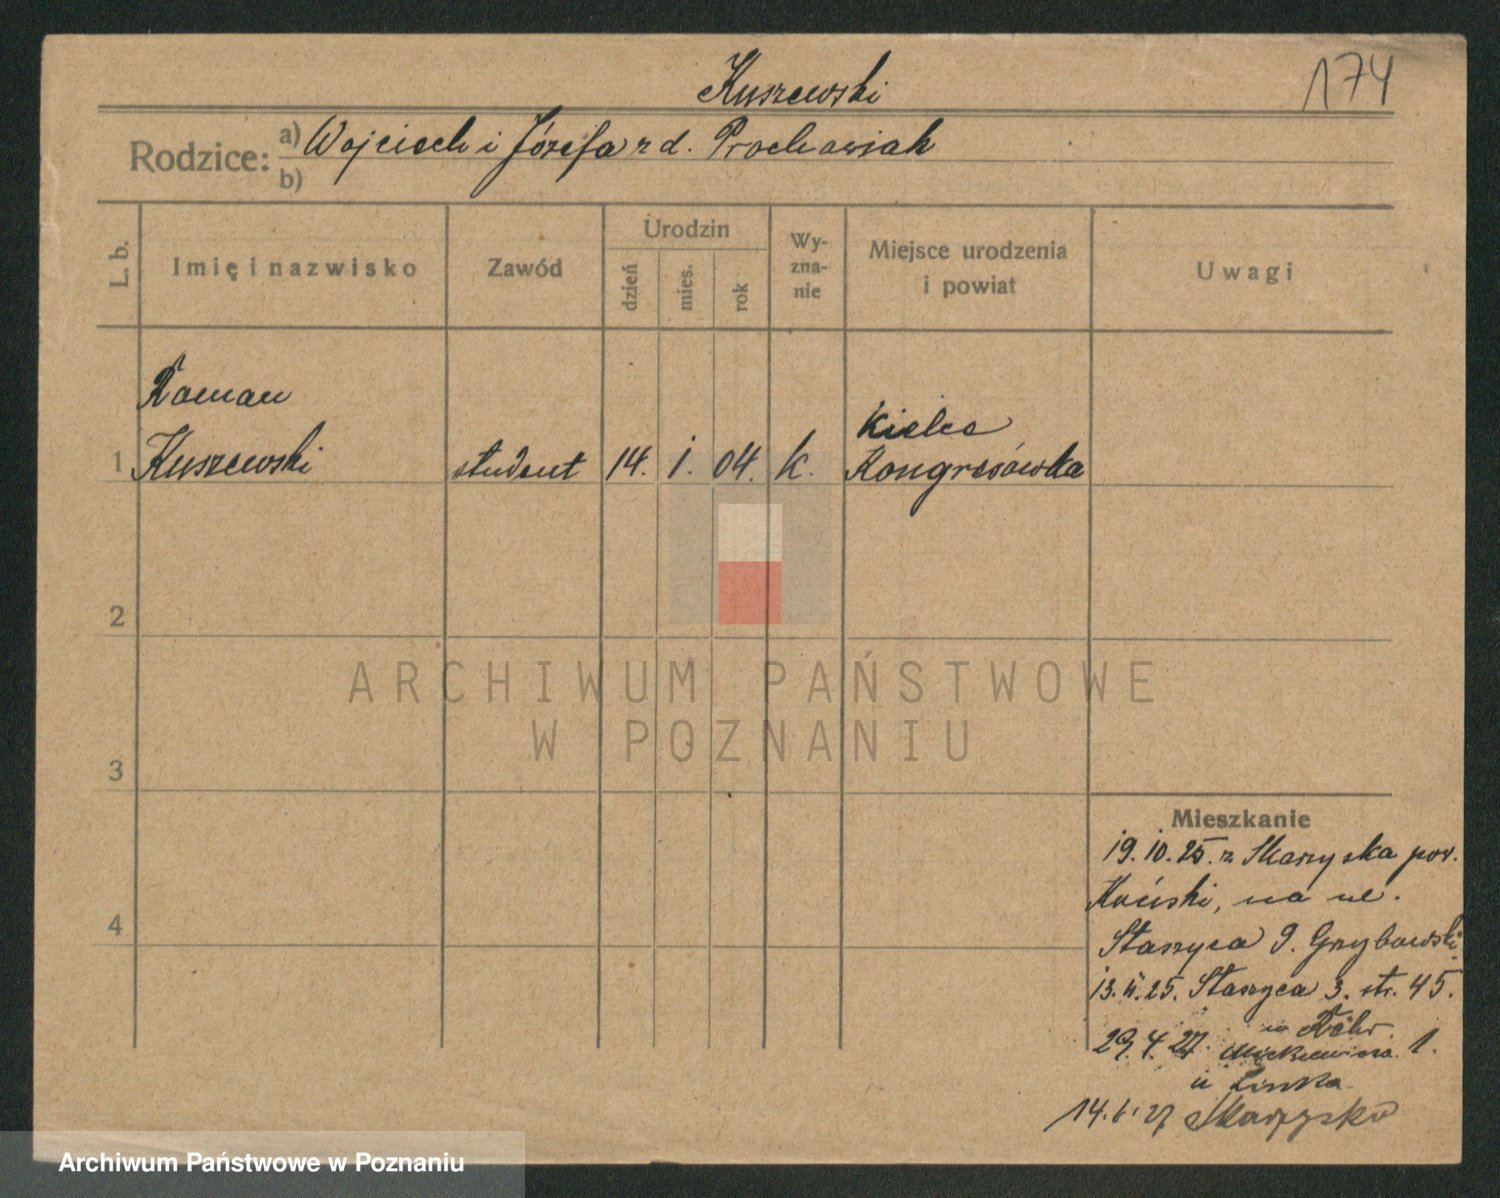 Kuszewski
174
Rodzice: a) Wojciech i Józefa z d. Prochawiak
b)
L. b.
Imię i nazwisko
Zawód
Urodzin
dzień
mies.
rok
Wy-
zna-
nie
Miejsce urodzenia
i powiat
Uwagi
Roman
Kielce
1 Kuszewski student 14. I. 04. k. Kongresówka
2
ARCHIWUM PAŃSTWOWE
W POZNANIU
3
Mieszkanie
19. 10. 25. z Skarzyska pov.
Koński, na ul.
4
Staszyca 9. Grzybowski
13. 11. 25. Staszyca 3. str. 45.
29. 4. 27. Mickiewicza 1.
u
14. 6. 27 Skarzysko
Archiwum Państwowe w Poznaniu